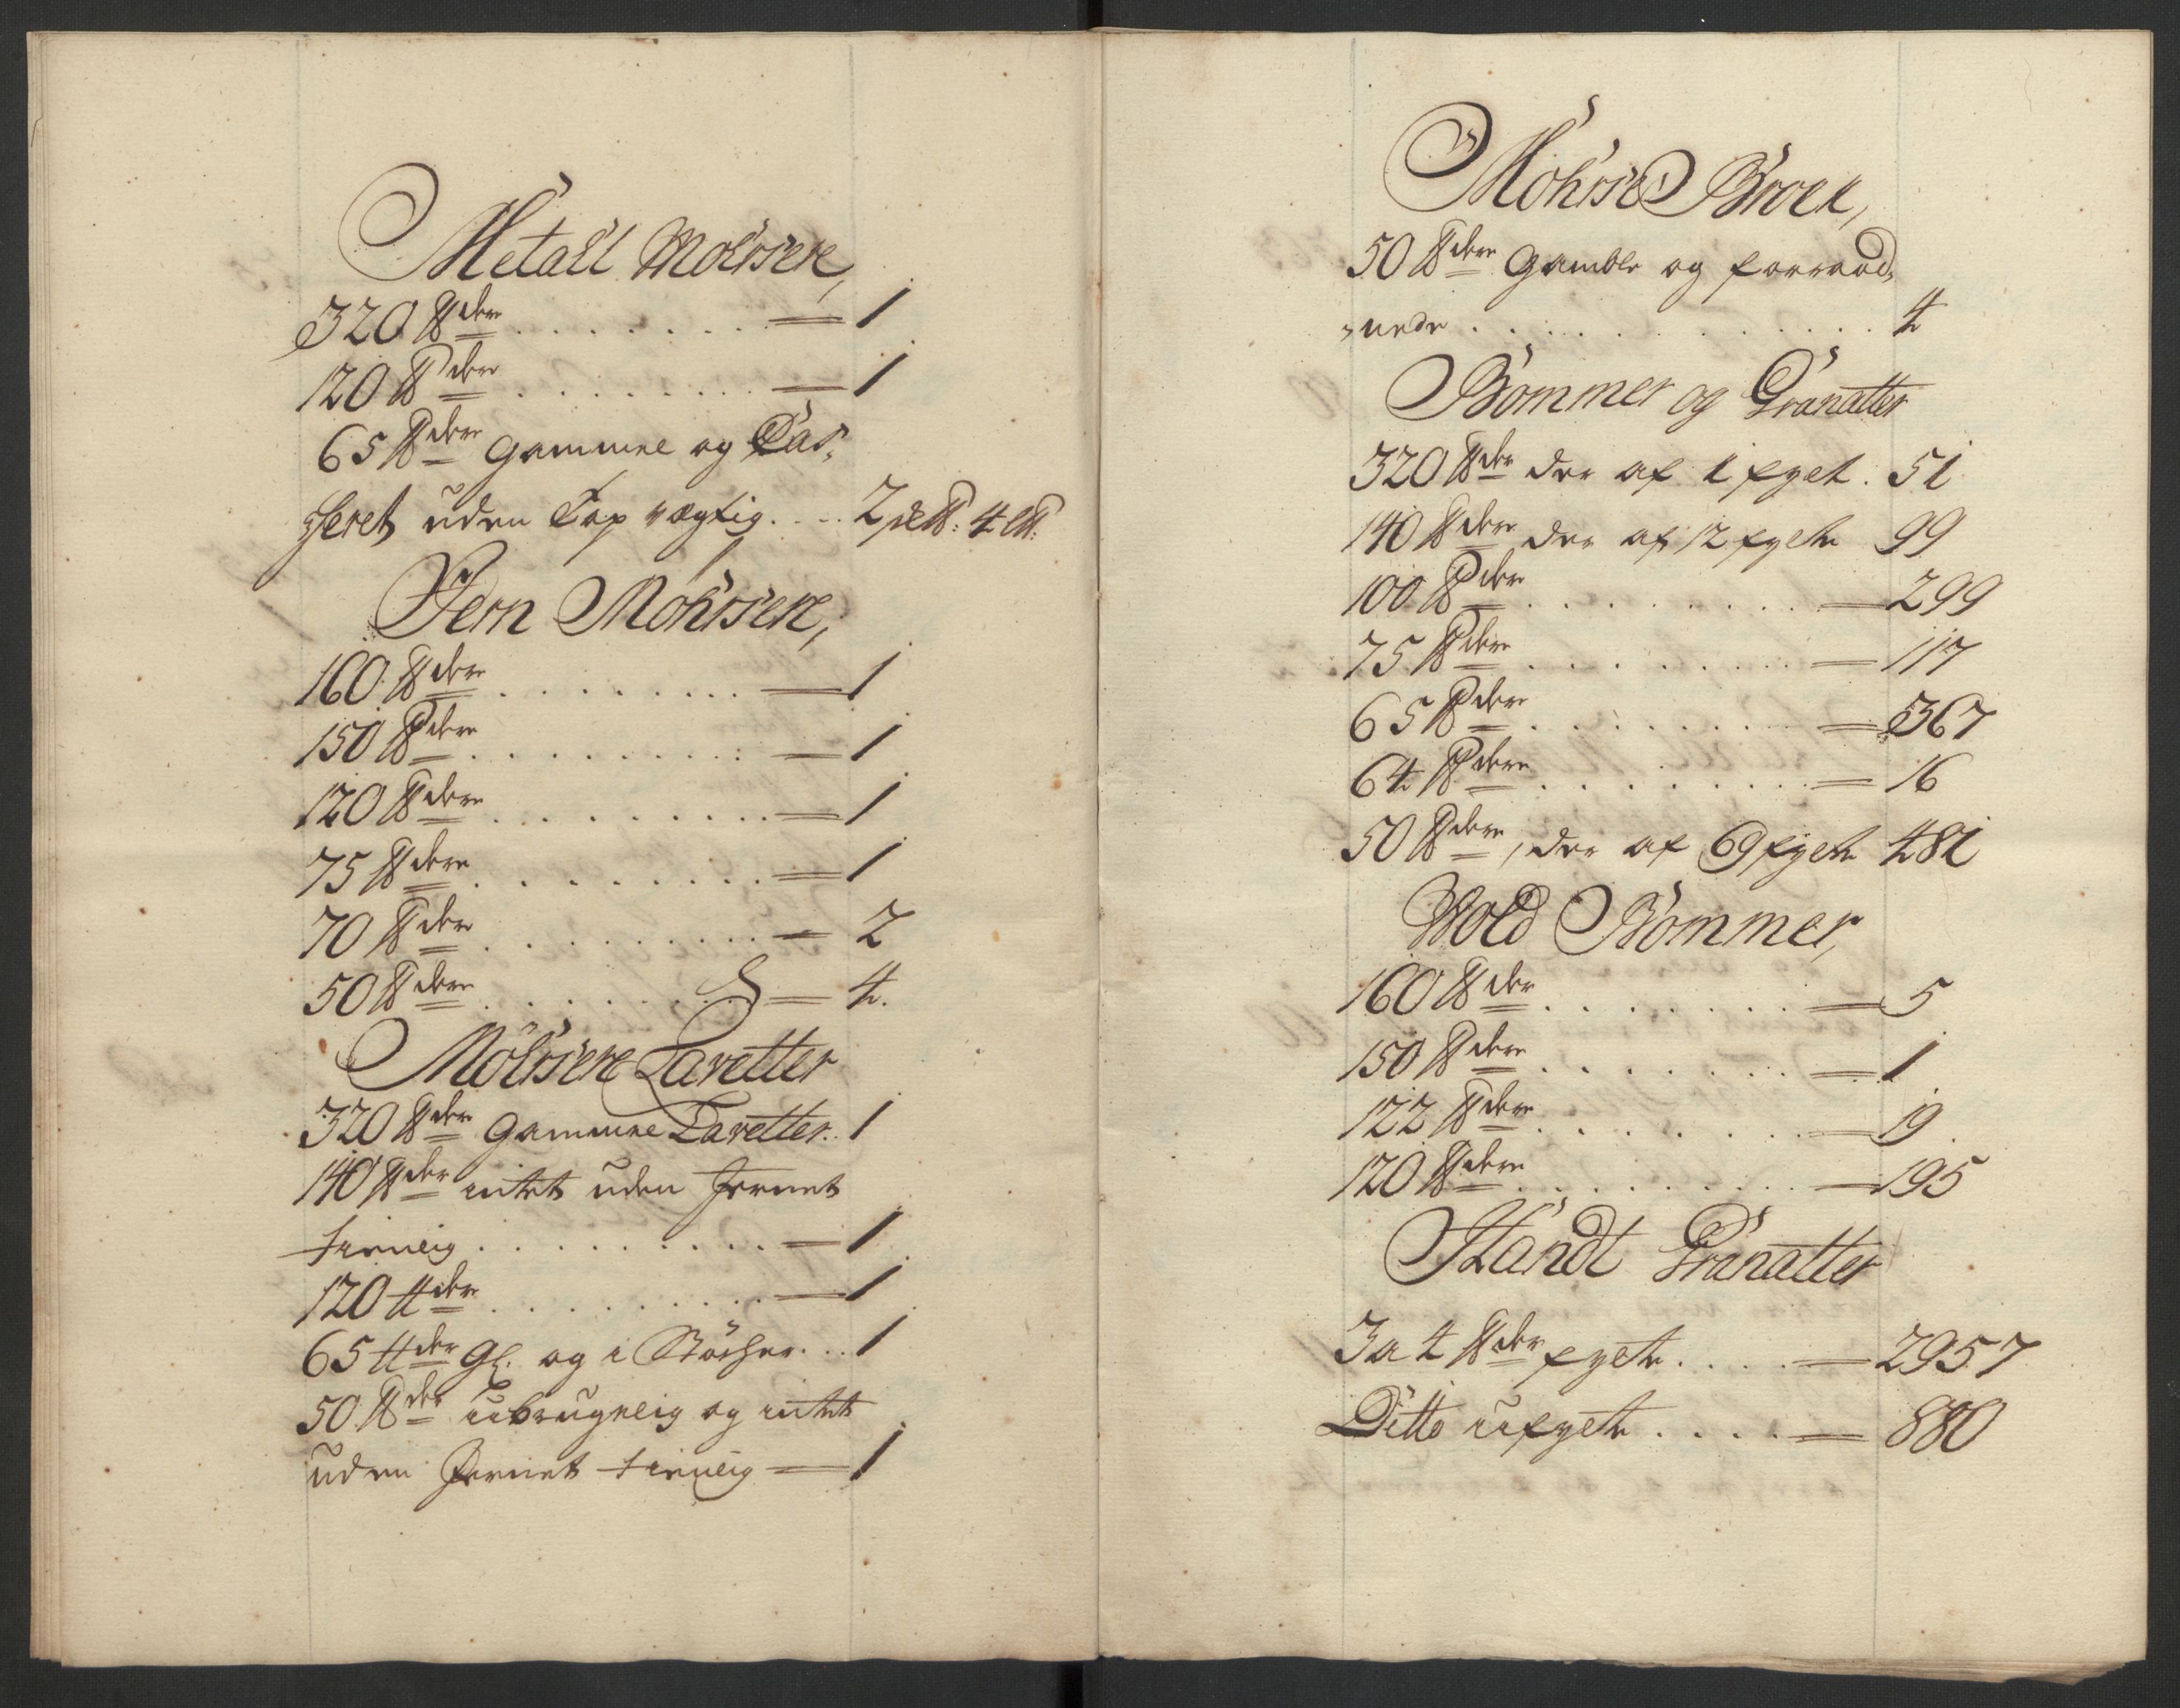 Metall Mohrsere,
320 ℔der ........ = 1
120 ℔der ........ = 1
65 ℔der gammel og Cas„
seret uden Tap vægtig .... 2 s℔: 4 l℔:
Jern Mohrsere,
160 ℔der ......... = 1
150 ℔der ......... = 1
120 ℔der ......... = 1
75 ℔der ......... = 1
70 ℔der ......... = 2
50 ℔der ......... = 4.
Mohrsere Lavetter
320 ℔der gammel Lavetter.. 1
140 ℔der intet uden Jernet
tienlig ......... = 1
120 ℔der ......... = 1
65 ℔der gl. og i Stöcher... 1
50 ℔der ubrugelig og intet
uden Jernet tienlig = 1
Mohrse Brock,
50 ℔der gamble og forraad„
„nede ............ 4
Bommer og Granatter
320 ℔der der af 1 fylt . 51
140 ℔der der af 12 fylte 99
100 ℔der ......... = 299
75 ℔der ......... = 117
65 ℔der ......... = 367
64 ℔der ......... = 16
50 ℔der, der af 69 fylte 481
Wold Bommer,
160 ℔der ........ = 5
150 ℔der ........ = 1
122 ℔der ........ = 19
120 ℔der ......... = 195
Handt Granatter
3 a 4 ℔der fylte .... = 2957
Ditto ufylte .... = 880